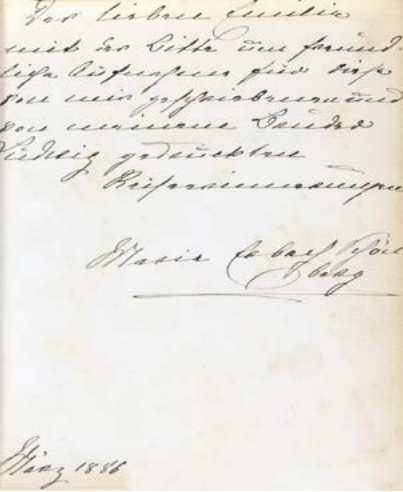 Der lieben Emilie
mit der Bitte um freund-
liche Aufnahme für diese
von mir geschriebenen und
von meinem Bruder
Ludwig gedruckten
Reiseerinnerungen
Marie Erbach Schön
berg
März 1886